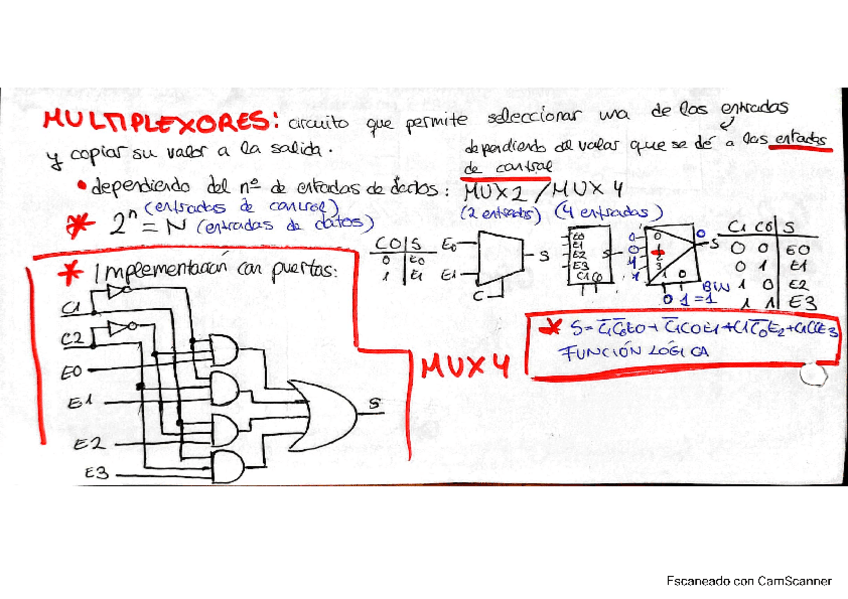 MULTIPLEXORES: circuito que permite seleccionar una de las entradas
y copiar su valor a la salida. dependiendo del valor que se dé a las entradas
de control
• dependiendo del nº de entradas de datos: MUX2 / MUX 4
(entradas de control) (2 entradas) (4 entradas)
* 2ⁿ = N (entradas de datos)
* Implementación con puertas:
C1
C2
E0
E1
E2
E3
S
C0 | S
0 | E0
1 | E1
E0
E1
C
S
E0
E1
E2
E3
C1 C0
S
0
1
2
3
1 0
S
0
BIN
0 1 = 1
C1 C0 | S
0 0 | E0
0 1 | E1
1 0 | E2
1 1 | E3
MUX 4
* S = C̅1C̅0E0 + C̅1C0E1 + C1C̅0E2 + C1C0E3
FUNCIÓN LÓGICA
Escaneado con CamScanner